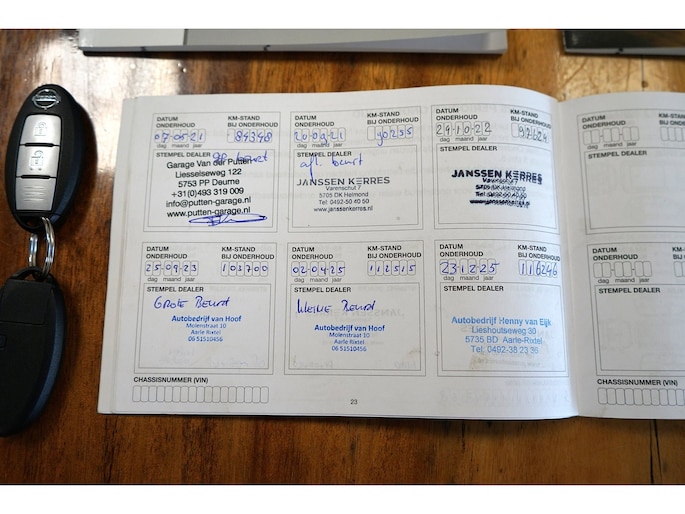 DATUM ONDERHOUD KM-STAND BIJ ONDERHOUD
07-05-21 84348
dag maand jaar
STEMPEL DEALER
Garage Van der Putten
Liesselseweg 122
5753 PP Deurne
+31(0)493 319 009
info@putten-garage.nl
www.putten-garage.nl
DATUM ONDERHOUD KM-STAND BIJ ONDERHOUD
20-09-21 90255
dag maand jaar
STEMPEL DEALER
afl. beurt
JANSSEN KERRES
Varenschut 7
5705 DK Helmond
Tel: 0492-50 40 50
www.janssenkerres.nl
DATUM ONDERHOUD KM-STAND BIJ ONDERHOUD
24-10-22
dag maand jaar
STEMPEL DEALER
JANSSEN KERRES
Varenschut 7
5705 DK Helmond
Tel: 0492-50 40 50
www.janssenkerres.nl
DATUM ONDERHOUD KM-STAND BIJ ONDERHOUD
dag maand jaar
STEMPEL DEALER
DATUM ONDERHOUD KM-STAND BIJ ONDERHOUD
25-09-23 103700
dag maand jaar
STEMPEL DEALER
GROTE BEURT
Autobedrijf van Hoof
Molenstraat 10
Aarle Rixtel
06 51510456
DATUM ONDERHOUD KM-STAND BIJ ONDERHOUD
02-04-25 112515
dag maand jaar
STEMPEL DEALER
kleine Beurt
Autobedrijf van Hoof
Molenstraat 10
Aarle Rixtel
06 51510456
DATUM ONDERHOUD KM-STAND BIJ ONDERHOUD
23-12-25 116246
dag maand jaar
STEMPEL DEALER
Autobedrijf Henny van Eijk
Lieshoutseweg 30
5735 BD Aarle-Rixtel
Tel: 0492-38 23 36
DATUM ONDERHOUD KM-STAND BIJ ONDERHOUD
dag maand jaar
STEMPEL DEALER
CHASSISNUMMER (VIN)
23
CHASSISNUMMER (VIN)